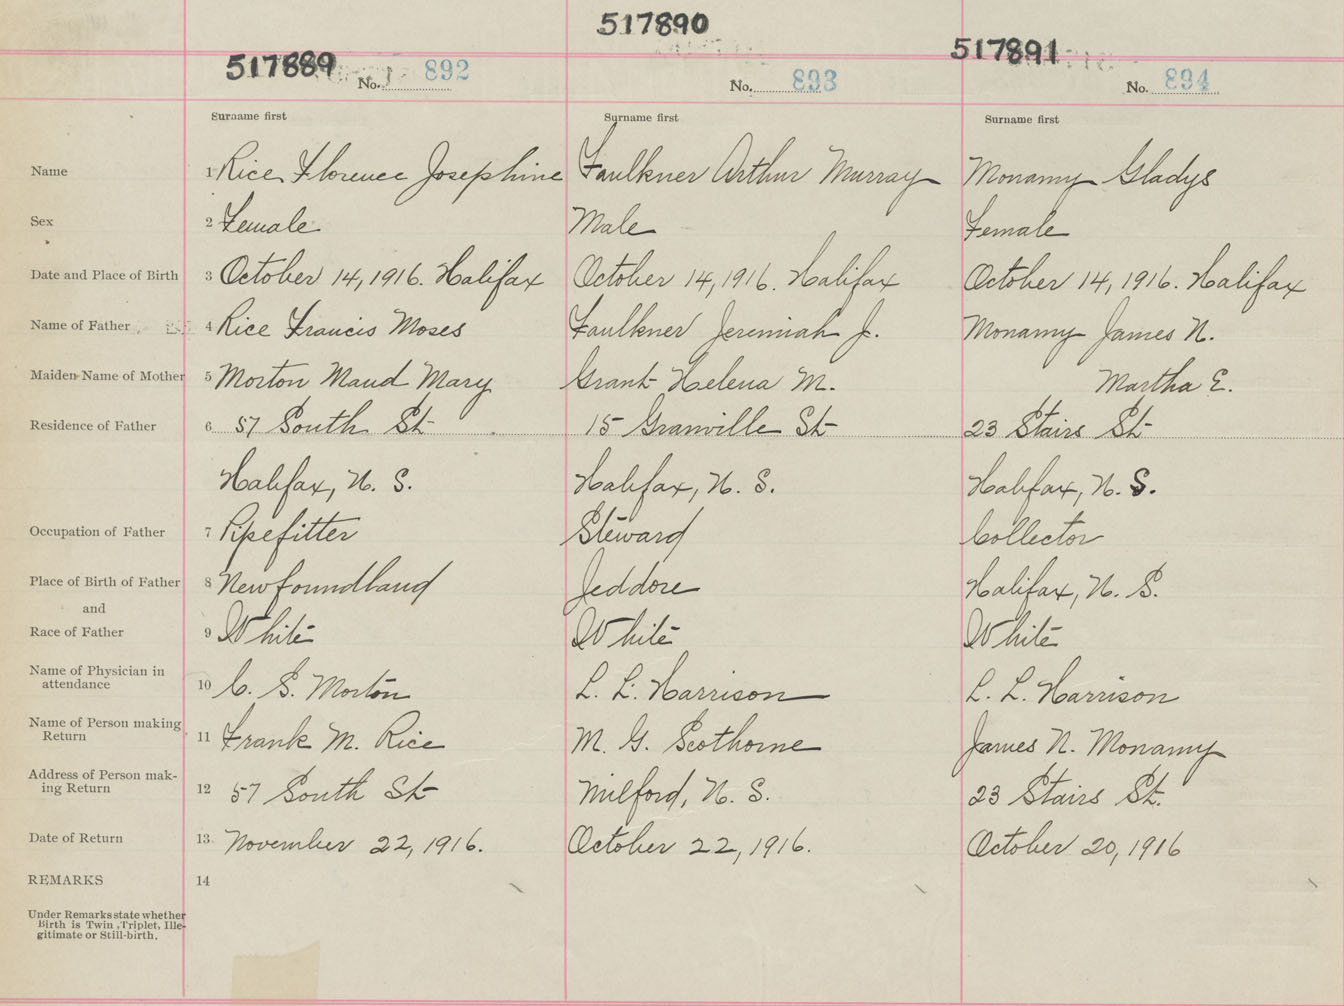 517889 517890 517891
No. 892 No. 893 No. 894
Surname first Surname first Surname first
Name 1 Rice Florence Josephine Faulkner Arthur Murray Monamy Gladys
Sex 2 Female Male Female
Date and Place of Birth 3 October 14, 1916. Halifax October 14, 1916. Halifax October 14, 1916. Halifax
Name of Father 4 Rice Francis Moses Faulkner Jeremiah J. Monamy James N.
Maiden Name of Mother 5 Morton Maud Mary Grant Helena M. Martha E.
Residence of Father 6 57 South St 15 Granville St 23 Stairs St
Halifax, N. S. Halifax, N. S. Halifax, N. S.
Occupation of Father 7 Pipefitter Steward Collector
Place of Birth of Father 8 Newfoundland Jeddore Halifax, N. S.
and
Race of Father 9 White White White
Name of Physician in
attendance 10 C. S. Morton L. L. Harrison L. L. Harrison
Name of Person making
Return 11 Frank M. Rice M. G. Scothorne James N. Monamy
Address of Person mak-
ing Return 12 57 South St Milford, N. S. 23 Stairs St.
Date of Return 13 November 22, 1916. October 22, 1916. October 20, 1916
REMARKS 14
Under Remarks state whether
Birth is Twin, Triplet, Ille-
gitimate or Still-birth.